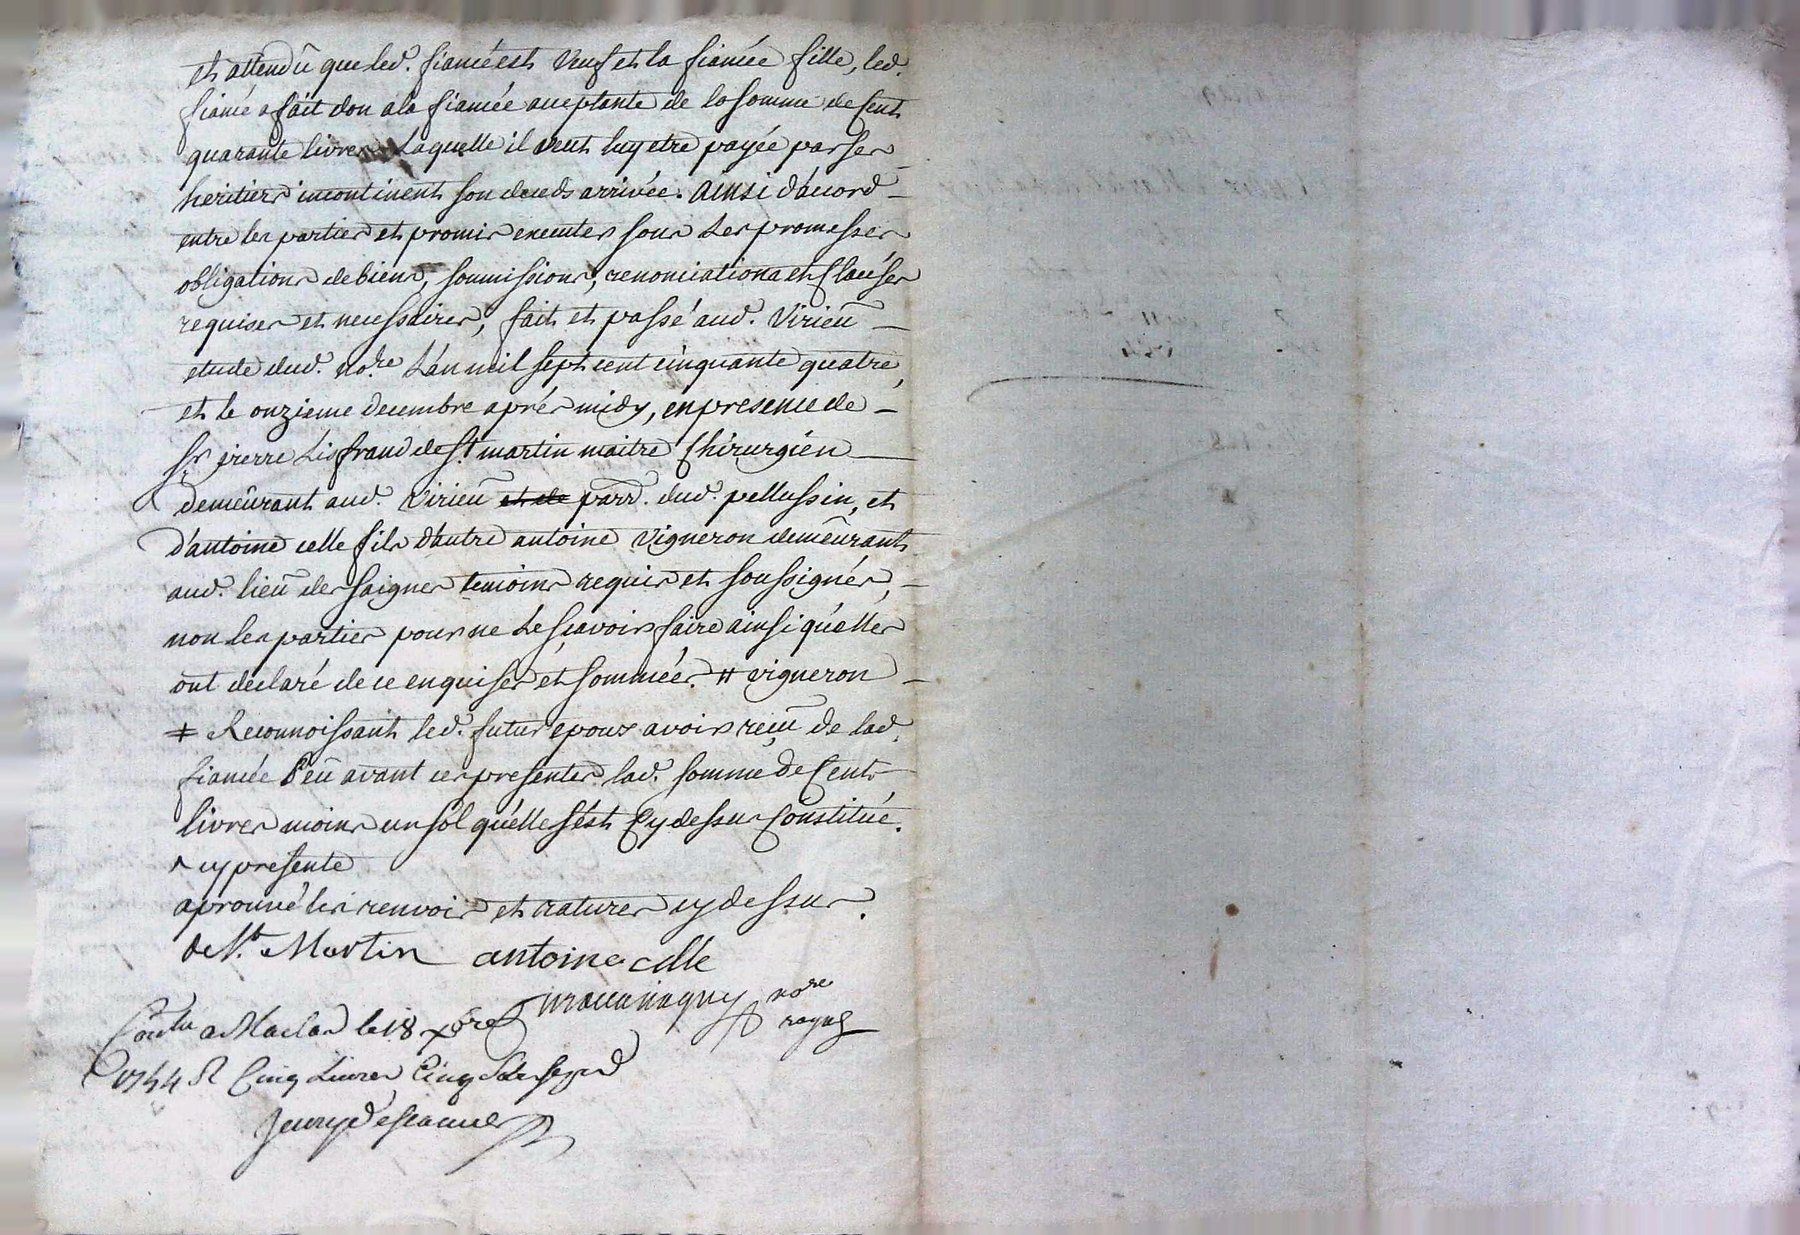 et attendû que led. fiancé est veuf et la fiancée fille, led.
fiancé a fait don a la fiancée acceptante de la somme de Cent
quarante livres Laquelle il veut luy etre payée par ses
heritiers incontinent son deceds arrivée. Ainsi d'accord
entre les parties et promis executer sous Les promesses
obligations de biens, soumissions, renonciations et Clauses
requises et necessaires, fait et passé aud. Virieû
etude dud. no.re L'an mil sept cent cinquante quatre,
et le onzieme decembre aprés midy, en presence de
Sr. pierre Lisfrand de St. martin maitre Chirurgien
demeûrant aud. Virieû et de parr. dud. pellussin, et
d'antoine celle fils d'autre antoine vigneron demeûrant
aud. lieû des Saignes temoins requis et soussignés,
non les parties pour ne Le sçavoir faire ainsi qu'elles
ont declaré de ce enquises et sommées. # vigneron
# Reconnoissant led. futur epoux avoir reçû de lad.
fiancée peû avant ces presentes lad. somme de Cent
livres moins un sol qu'elle s'est Cy dessus Constitué.
^ cy presente
aprouvé les renvois et ratures cy dessus.
de St. Martin antoine celle
no.re
royal
Con.lu a Maclas le 18 xbre
1754 R Cinq Livres Cinq Sols